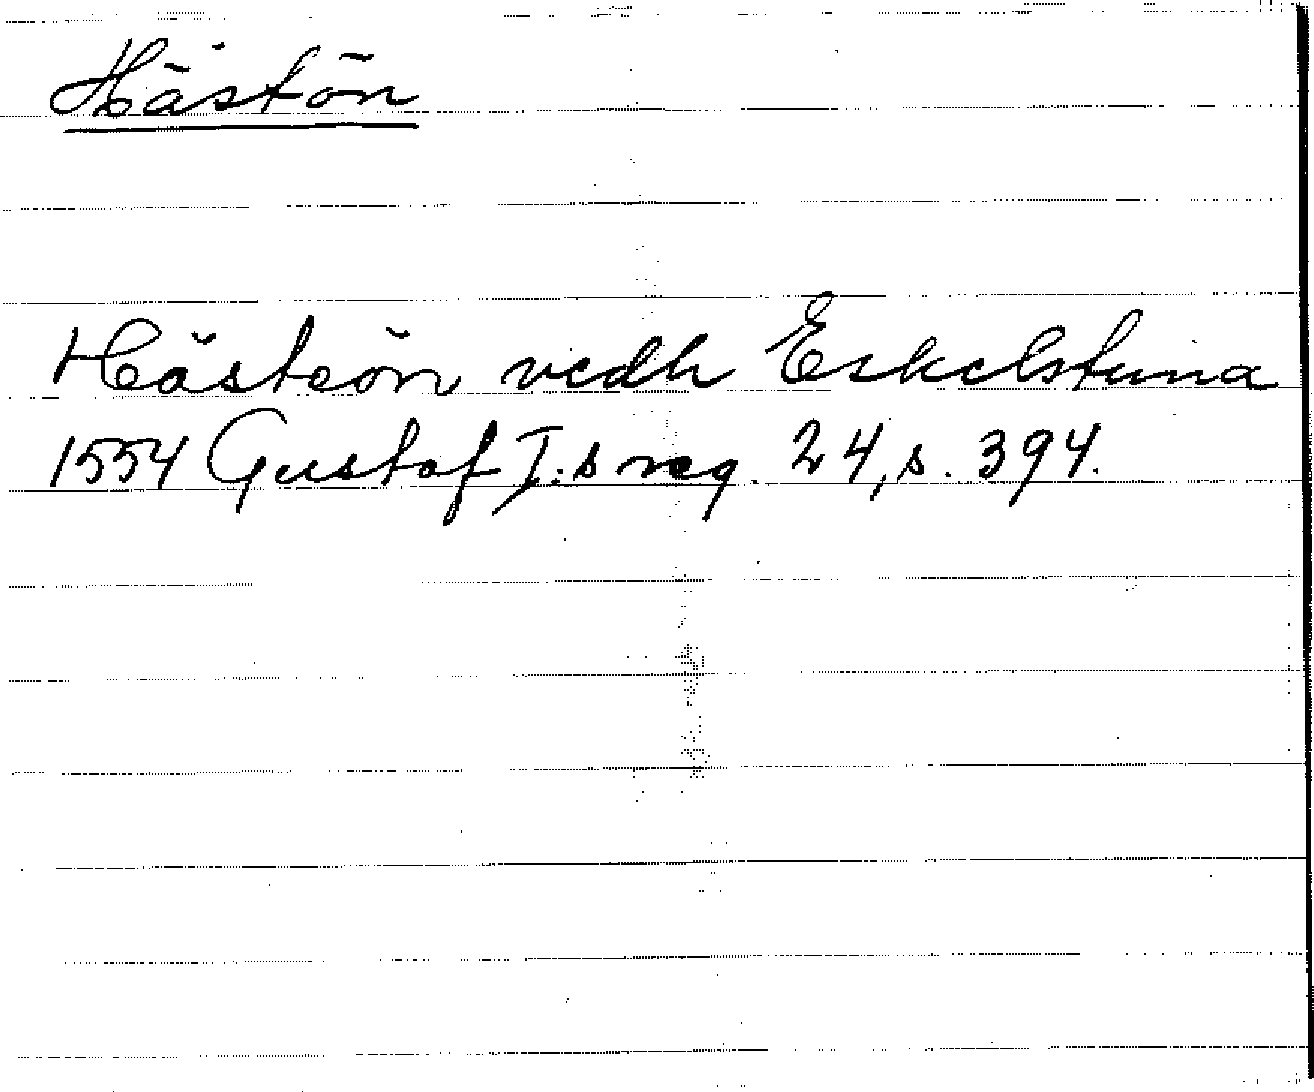 Hästön
Hästeön vedh Eskelstuna
1554 Gustaf I:s reg. 24, s. 394.